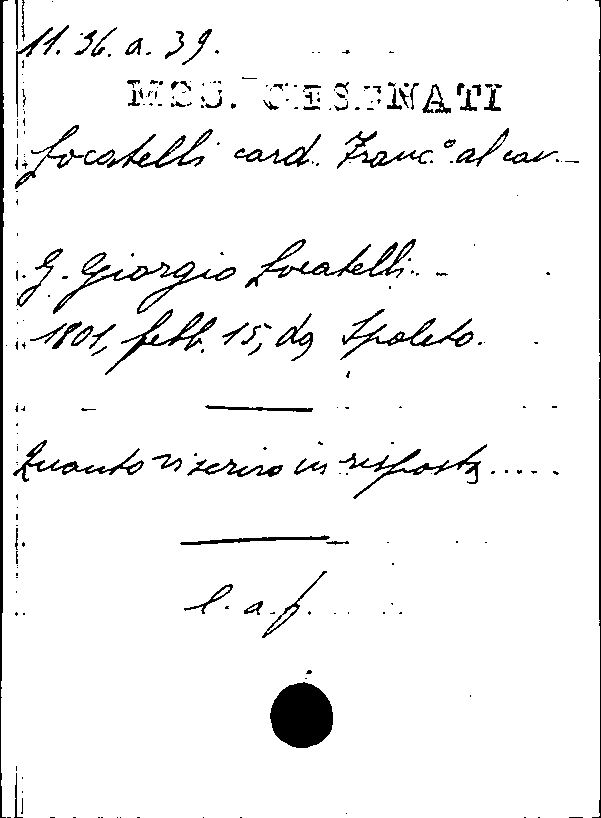 11. 36. a. 39.
MSS. CESENATI
Locatelli card. Franc.º al cav.
G. Giorgio Locatelli.
1801, febb. 15, da Spoleto.
Quanto vi scrivo in risposta.....
l. a. f.